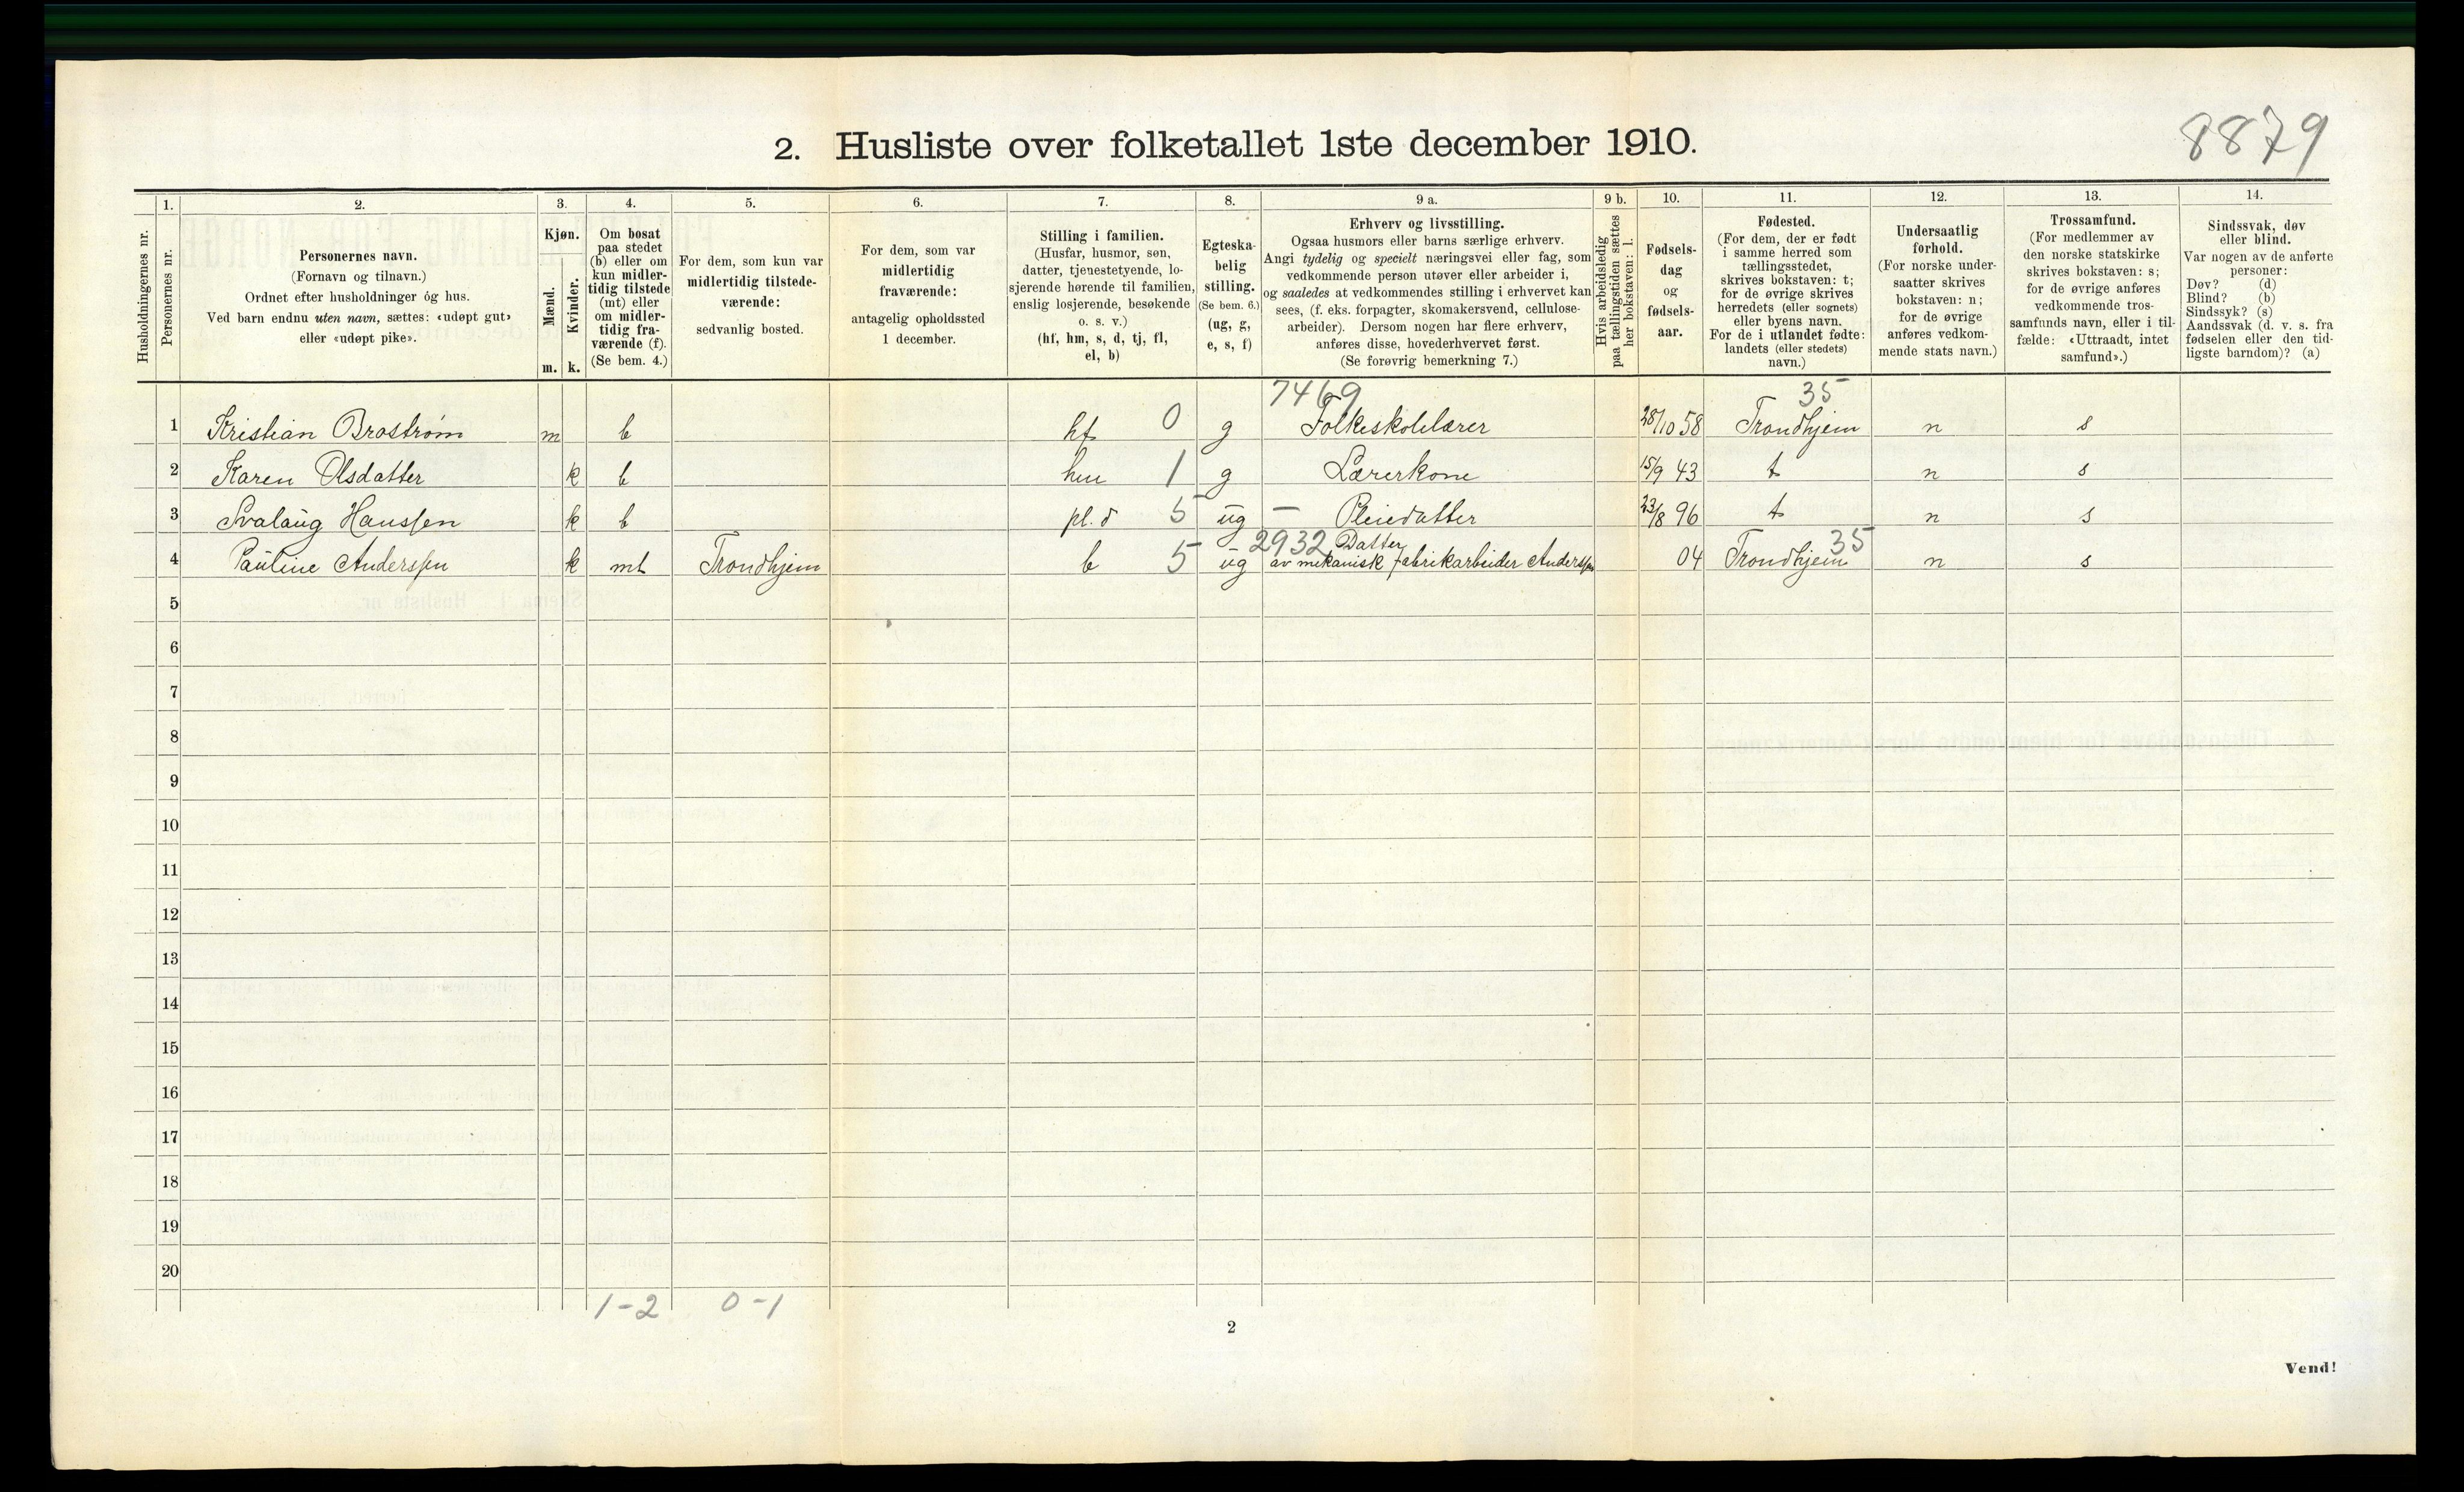 8879
2. Husliste over folketallet 1ste december 1910.
1. 2. 3. 4. 5. 6. 7. 8. 9 a. 9 b. 10. 11. 12. 13. 14.
Husholdningernes nr.
Personernes nr.
Personernes navn.
(Fornavn og tilnavn.)
Ordnet efter husholdninger og hus.
Ved barn endnu uten navn, sættes: «udøpt gut»
eller «udøpt pike».
Kjøn.
Mænd.
Kvinder.
m. k.
Om bosat
paa stedet
(b) eller om
kun midler-
tidig tilstede
(mt) eller
om midler-
tidig fra-
værende (f).
(Se bem. 4.)
For dem, som kun var
midlertidig tilstede-
værende:
sedvanlig bosted.
For dem, som var
midlertidig
fraværende:
antagelig opholdssted
1 december.
Stilling i familien.
(Husfar, husmor, søn,
datter, tjenestetyende, lo-
sjerende hørende til familien,
enslig losjerende, besøkende
o. s. v.)
(hf, hm, s, d, tj, fl,
el, b)
Egteska-
belig
stilling.
(Se bem. 6.)
(ug, g,
e, s, f)
Erhverv og livsstilling.
Ogsaa husmors eller barns særlige erhverv.
Angi tydelig og specielt næringsvei eller fag, som
vedkommende person utøver eller arbeider i,
og saaledes at vedkommendes stilling i erhvervet kan
sees, (f. eks. forpagter, skomakersvend, cellulose-
arbeider). Dersom nogen har flere erhverv,
anføres disse, hovederhvervet først.
(Se forøvrig bemerkning 7.)
Hvis arbeidsledig
paa tællingstiden sættes
her bokstaven: l.
Fødsels-
dag
og
fødsels-
aar.
Fødested.
(For dem, der er født
i samme herred som
tællingsstedet,
skrives bokstaven: t;
for de øvrige skrives
herredets (eller sognets)
eller byens navn.
For de i utlandet fødte:
landets (eller stedets)
navn.)
Undersaatlig
forhold.
(For norske under-
saatter skrives
bokstaven: n;
for de øvrige
anføres vedkom-
mende stats navn.)
Trossamfund.
(For medlemmer av
den norske statskirke
skrives bokstaven: s;
for de øvrige anføres
vedkommende tros-
samfunds navn, eller i til-
fælde: «Uttraadt, intet
samfund».)
Sindssvak, døv
eller blind.
Var nogen av de anførte
personer:
Døv? (d)
Blind? (b)
Sindssyk? (s)
Aandssvak (d. v. s. fra
fødselen eller den tid-
ligste barndom)? (a)
7469 35
1 Kristian Brostrøm m b hf 0 g Folkeskolelærer 28/10 58 Trondhjem n s
2 Karen Olsdatter k b hm 1 g Lærerkone 15/9 43 t n s
3 Svalaug Hanssen k b pl. d 5 ug – Pleiedatter 23/8 96 t n s
2932 Datter 35
4 Pauline Anderssen k mt Trondhjem b 5 ug av mekanisk fabrikarbeider Anderssen 04 Trondhjem n s
5
6
7
8
9
10
11
12
13
14
15
16
17
18
19
20
1-2 0-1
2
Vend!